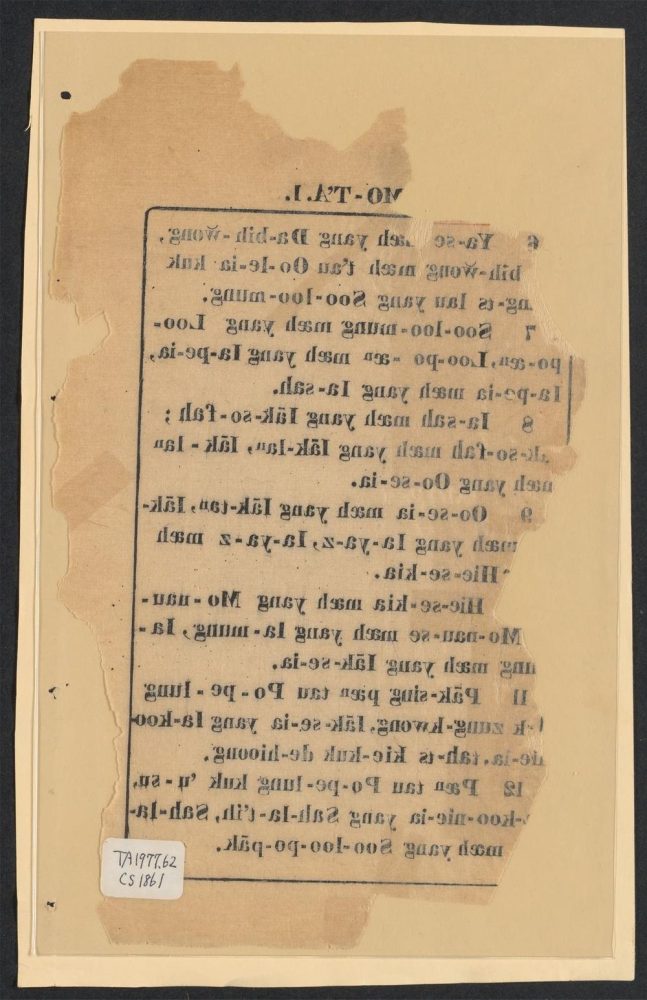 MO-T'A. I.
6 Ya-se mæh yang Da-bih-wŏng,
bih-wŏng mæh t'au Oo-le-ia kuk
-ng-ts lau yang Soo-loo-mung.
7 Soo-loo-mung mæh yang Loo-
po-æⁿ, Loo-po-æⁿ mæh yang Ia-pe-ia,
Ia-pe-ia mæh yang Ia-sah.
8 Ia-sah mæh yang Iāk-so-fah;
āk-so-fah mæh yang Iāk-laⁿ, Iāk-laⁿ
mæh yang Oo-se-ia.
9 Oo-se-ia mæh yang Iāk-taⁿ, Iāk-
mæh yang Ia-ya-z, Ia-ya-z mæh
Hie-se-kia.
Hie-se-kia mæh yang Mo-nau-
Mo-nau-se mæh yang Ia-mung, Ia-
ung mæh yang Iāk-se-ia.
11 Pāk-sing pæⁿ tau Po-pe-lung
k zung-kwong, Iāk-se-ia yang Ia-koo-
ie-ia, tah-ts kie-kuk de-hioong.
12 Pæⁿ tau Po-pe-lung kuk 'u-su,
-koo-nie-ia yang Sah-la-t'ih, Sah-la-
mæh yang Soo-loo-po-pāk.
TA1977.62
CS 1861